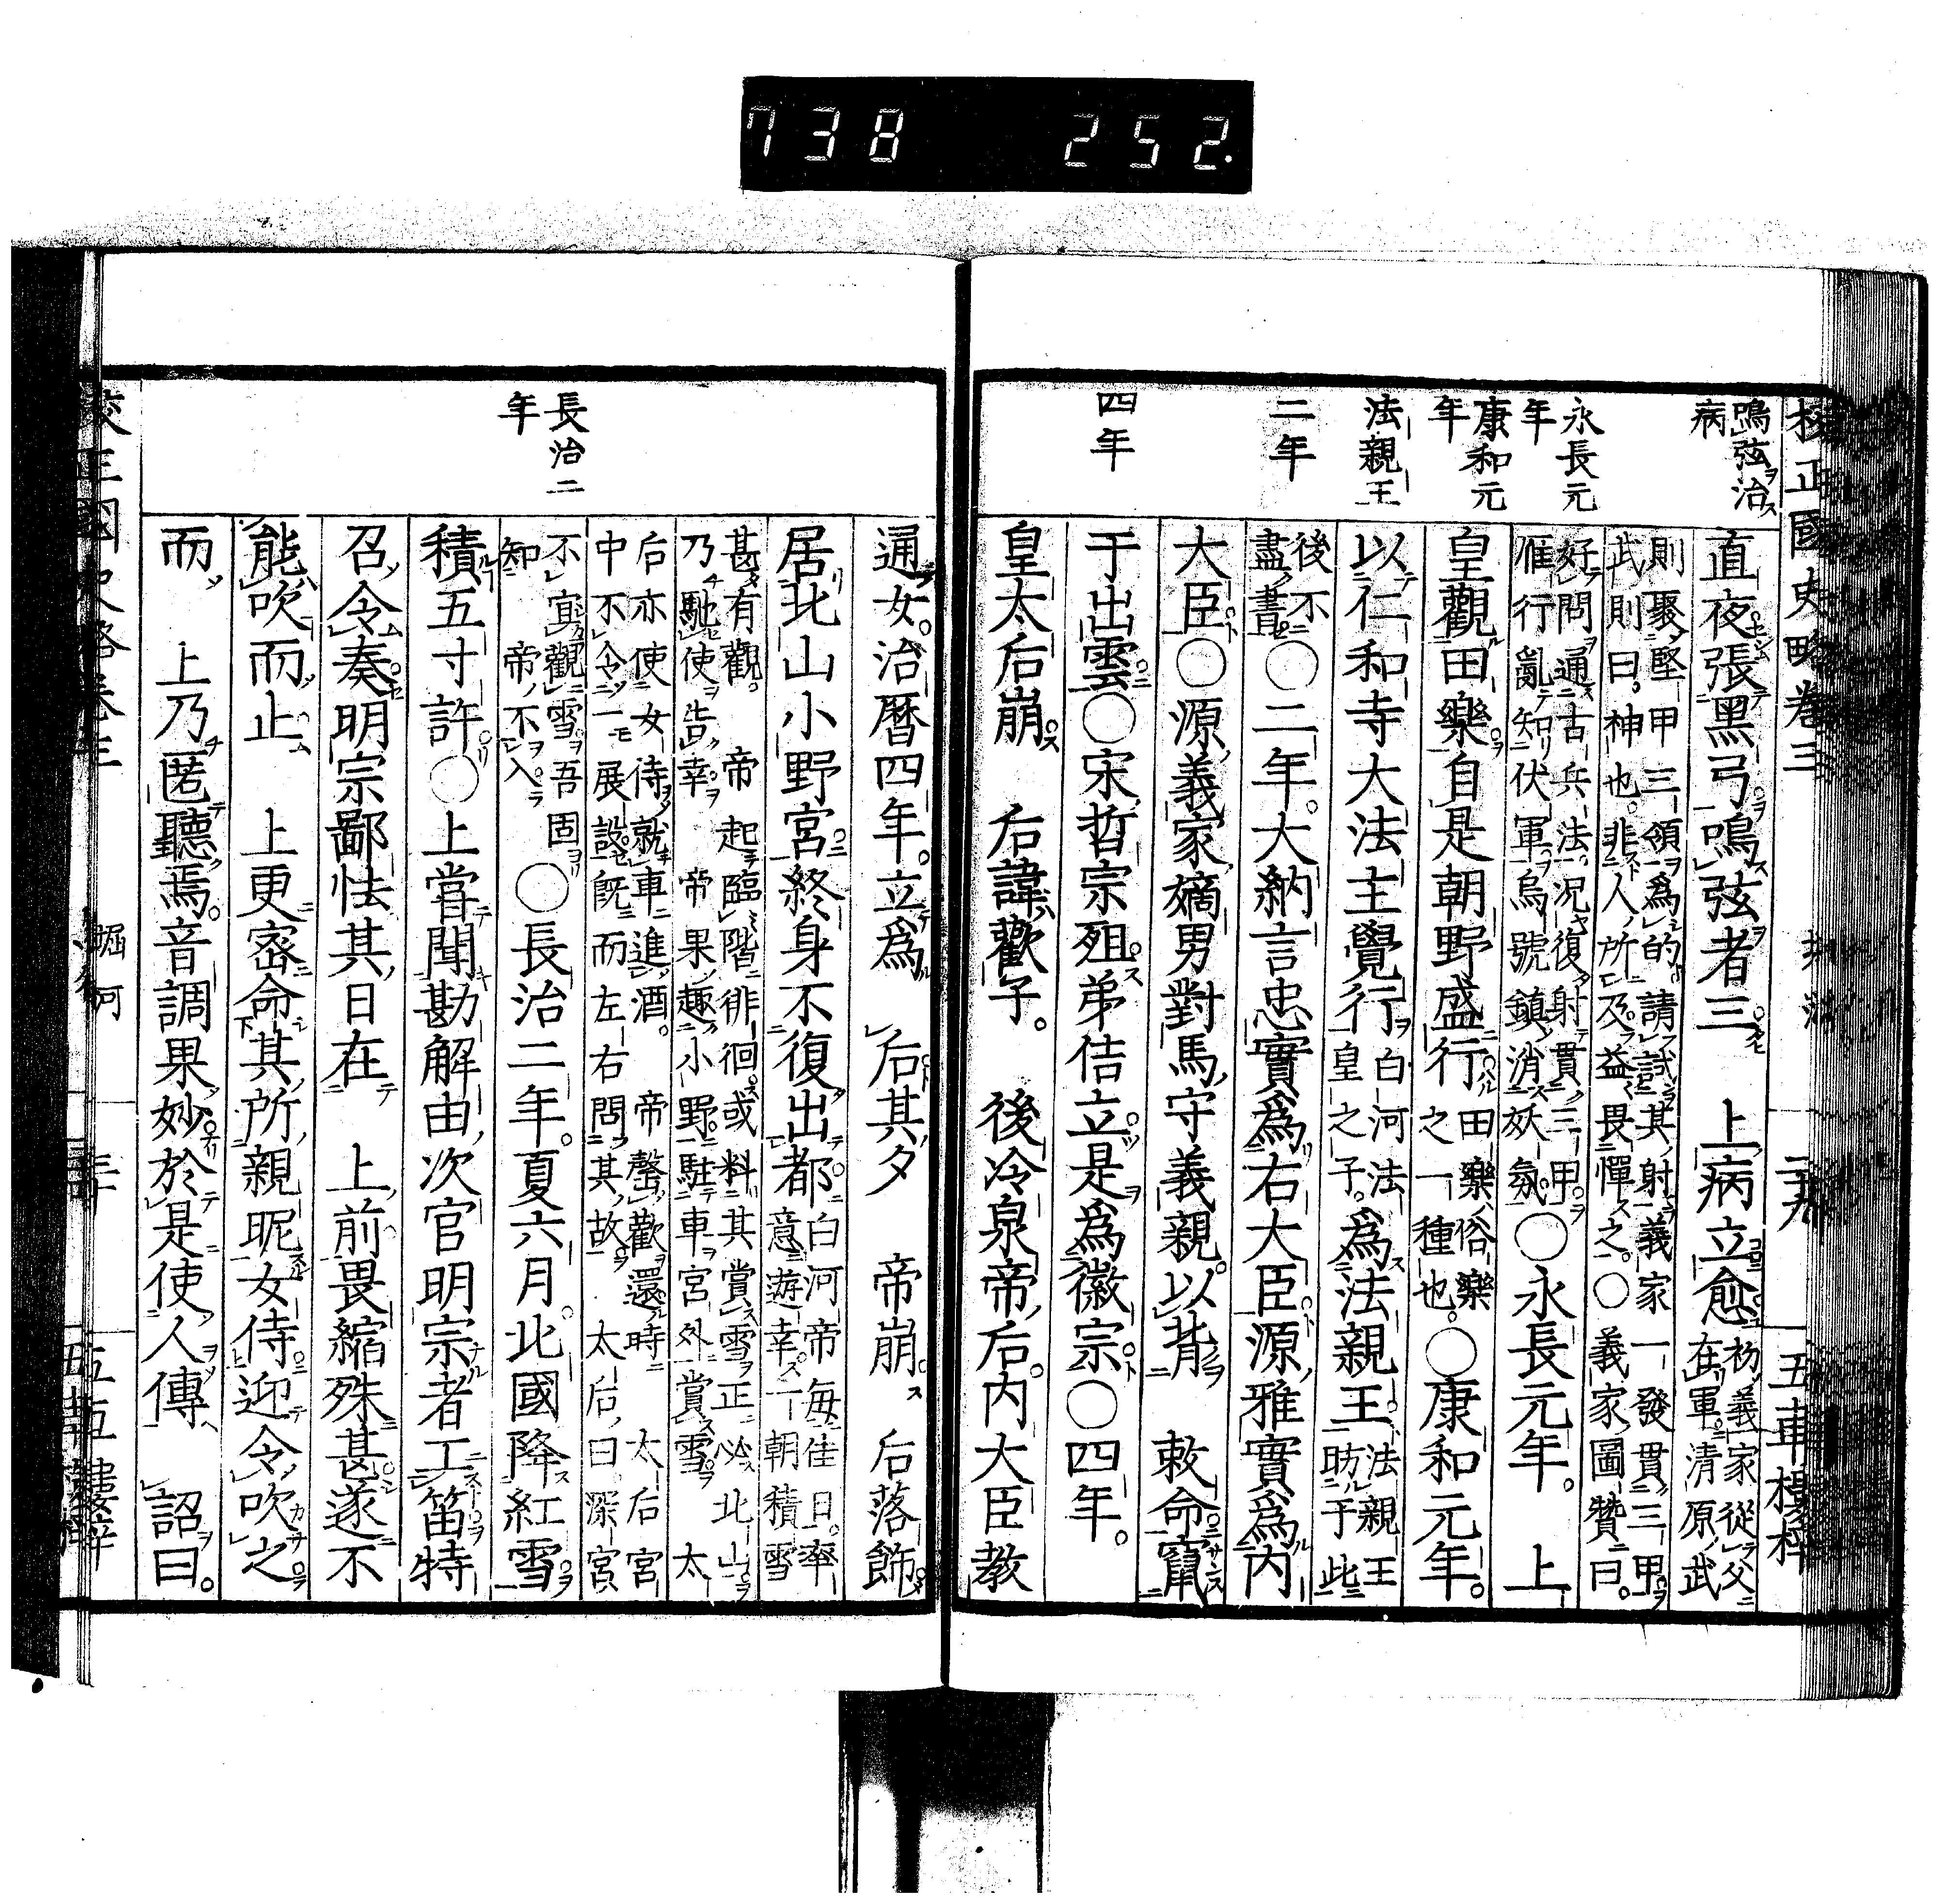 738 252.
校正國史略卷三
二十九
五車樓梓
鳴弦治病
永長元年
康和元年
法親王
二年
四年
直夜張黑弓鳴弦者三 上病立愈初義家從父在軍清原武
則聚堅甲三領爲的請試其射義家一發貫三甲
武則曰神也非人所及益畏憚之○義家圖贊曰
好問通古兵法况復射貫三甲
雁行亂知伏軍烏號鎮消妖氛○永長元年上
皇觀田樂自是朝野盛行田樂俗樂之一種也○康和元年
以仁和寺大法主覺行白河法皇之子爲法親王法親王昉于此
後不盡書○二年大納言忠實爲右大臣源雅實爲内
大臣○源義家嫡男對馬守義親以背 敕命竄
于出雲○宋哲宗殂弟佶立是爲徽宗○四年
皇太后崩 后諱歡子 後冷泉帝后内大臣教
長治二年
通女治曆四年立爲 后其夕 帝崩 后落飾
居北山小野宮終身不復出都白河帝每佳日率意遊幸一朝積雪
甚有觀 帝起臨階徘徊或料其賞雪正必北山
乃馳使告幸 帝果趣小野駐車宮外賞雪 太
后亦使女侍就車進酒 帝罄歡還時 太后宮
中不令一展設既而左右問其故 太后曰深宮
不宜觀雪吾固知 帝不入○長治二年夏六月北國降紅雪
積五寸許○上嘗聞勘解由次官明宗者工笛特
召令奏明宗鄙怯其日在 上前畏縮殊甚遂不
能吹而止 上更密命其所親昵女侍迎令吹之
而 上乃匿聽焉音調果妙於是使人傳 詔曰
校正國史略卷三
堀河
三十
五車樓梓